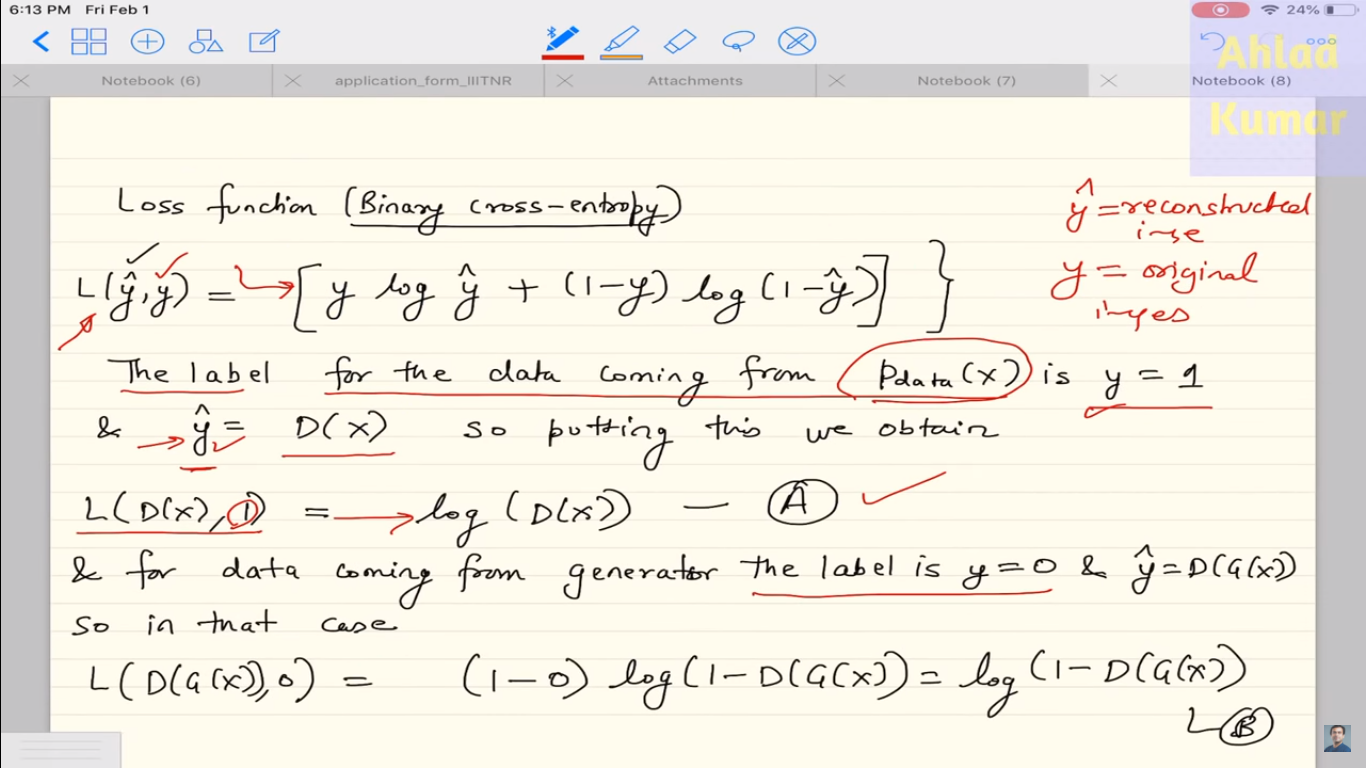 6:13 PM Fri Feb 1
24%
Notebook (6)
application_form_IIITNR
Attachments
Notebook (7)
Notebook (8)
Ahlad
Kumar
Loss function (Binary cross-entropy)
ŷ = reconstructed
L(ŷ, y) = [ y log ŷ + (1-y) log (1-ŷ)] }
y = original
The label for the data coming from Pdata(x) is y = 1
& ŷ = D(x) so putting this we obtain
L(D(x), 1) = log (D(x)) — A
& for data coming from generator the label is y=0 & ŷ=D(G(x))
so in that case
L(D(G(x)),0) = (1-0) log(1-D(G(x)) = log (1-D(G(x))
B